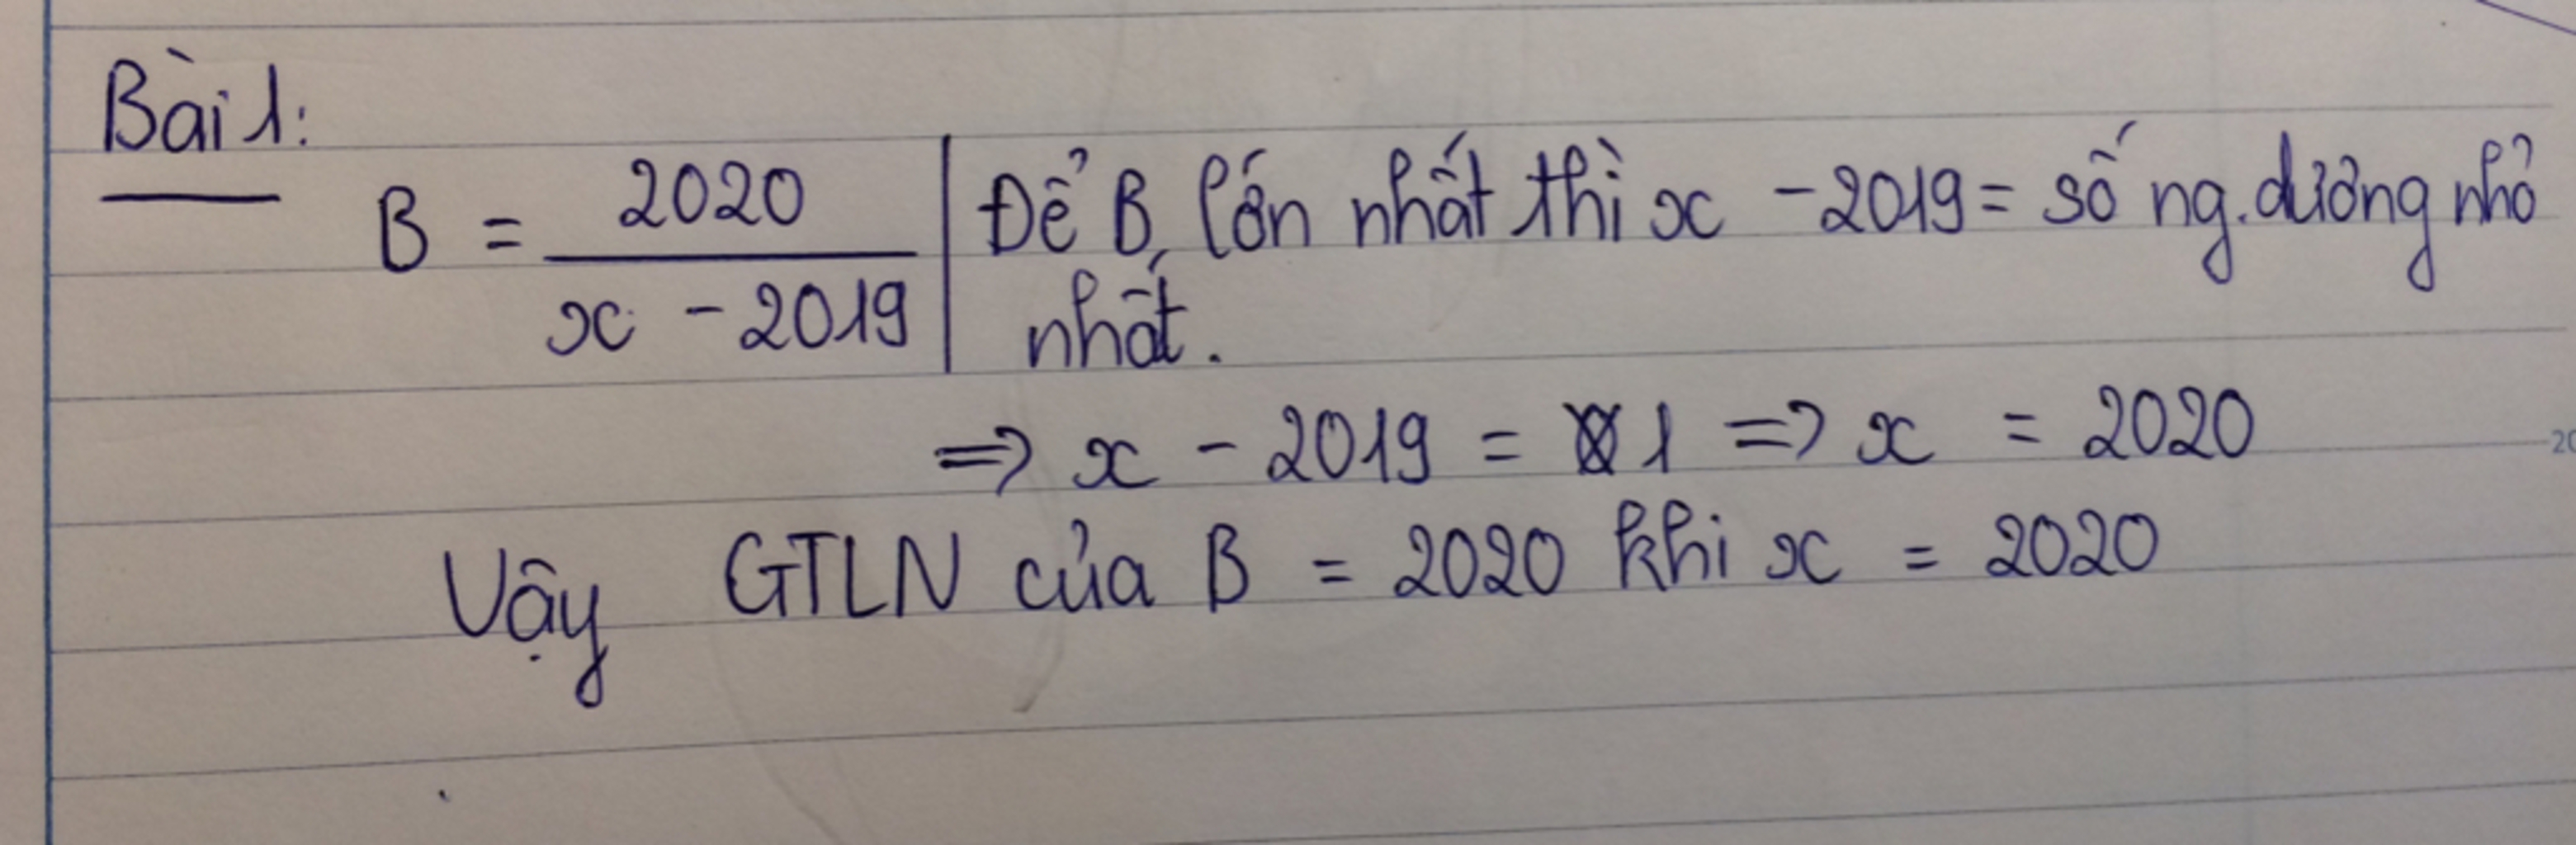 Bài 1:
B = 2020 / x - 2019 | Để B lớn nhất thì x - 2019 = số ng.dương nhỏ
nhất.
=> x - 2019 = 1 => x = 2020
Vậy GTLN của B = 2020 khi x = 2020